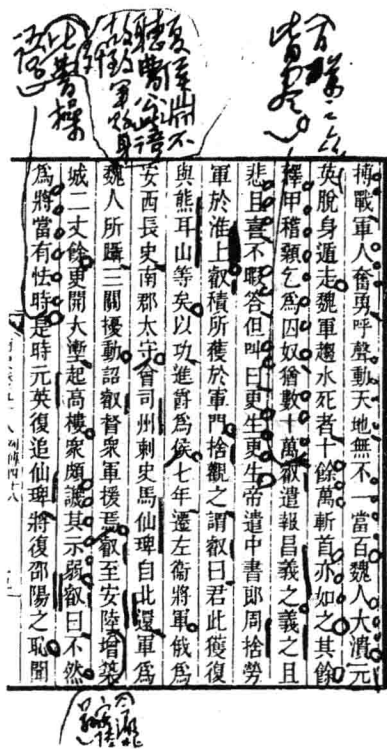 皆盡
夏侯淵不
聽曹公語
此曹操
搏戰軍人奮勇呼聲動天地無不一當百魏人大潰元
英脫身遁走魏軍趨水死者十餘萬斬首亦如之其餘
釋甲稽顙乞為囚奴猶數十萬叡遣報昌義之義之且
悲且喜不暇答但叫曰更生更生帝遣中書郎周捨勞
軍於淮上叡積所獲於軍門捨觀之謂叡曰君此獲復
與熊耳山等矣以功進爵為侯七年遷左衛將軍俄為
安西長史南郡太守會司州刺史馬仙琕自北還軍為
魏人所躡三關擾動詔叡督衆軍援焉叡至安陸增築
城二丈餘更開大塹起高樓衆頗譏其示弱叡曰不然
為將當有怯時是時元英復追仙琕將復邵陽之恥聞
列傳四十八